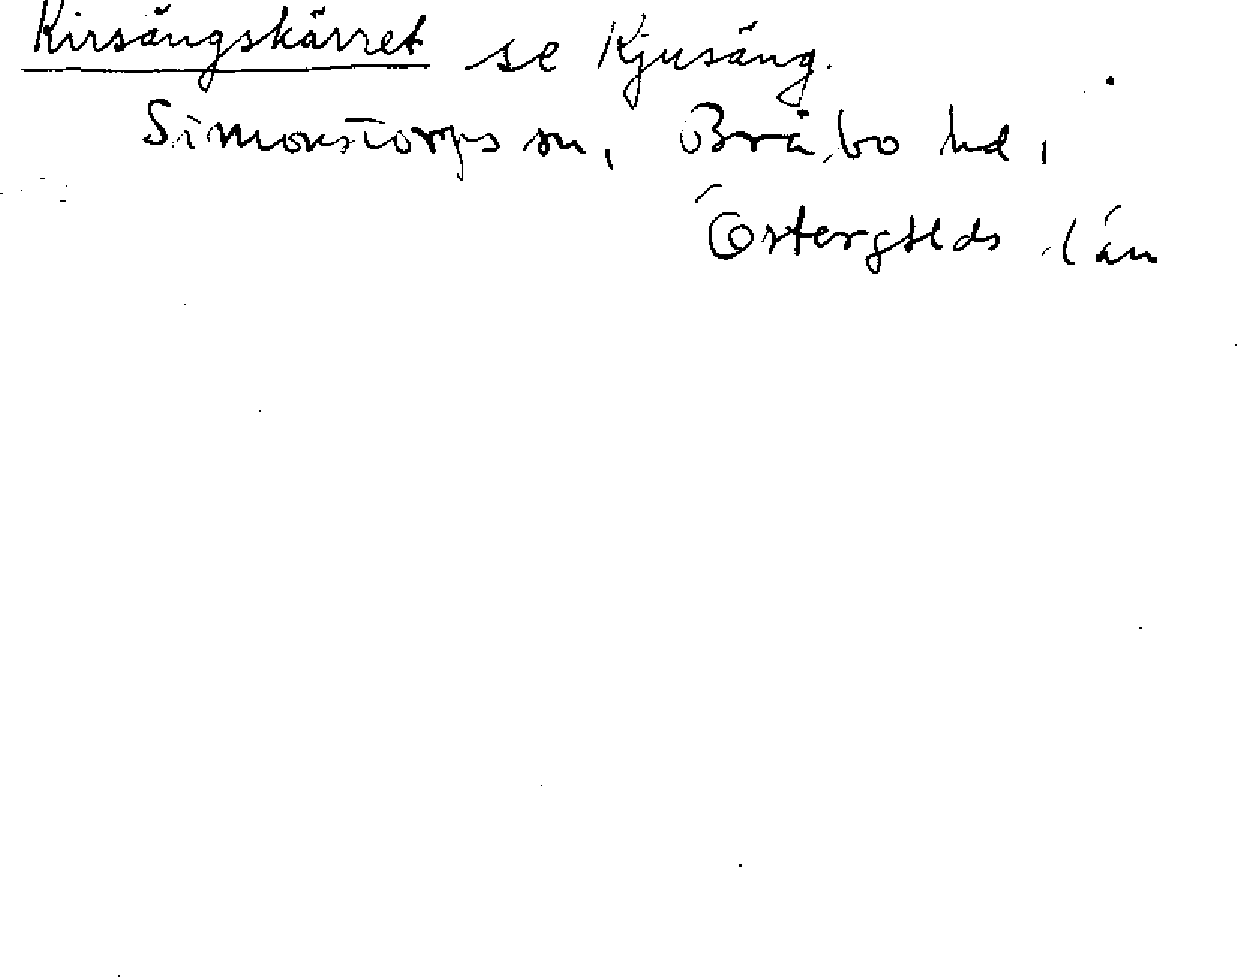 Kirsängskärret se Kjusäng.
Simonstorps sn, Bråbo hd,
Östergtlds län